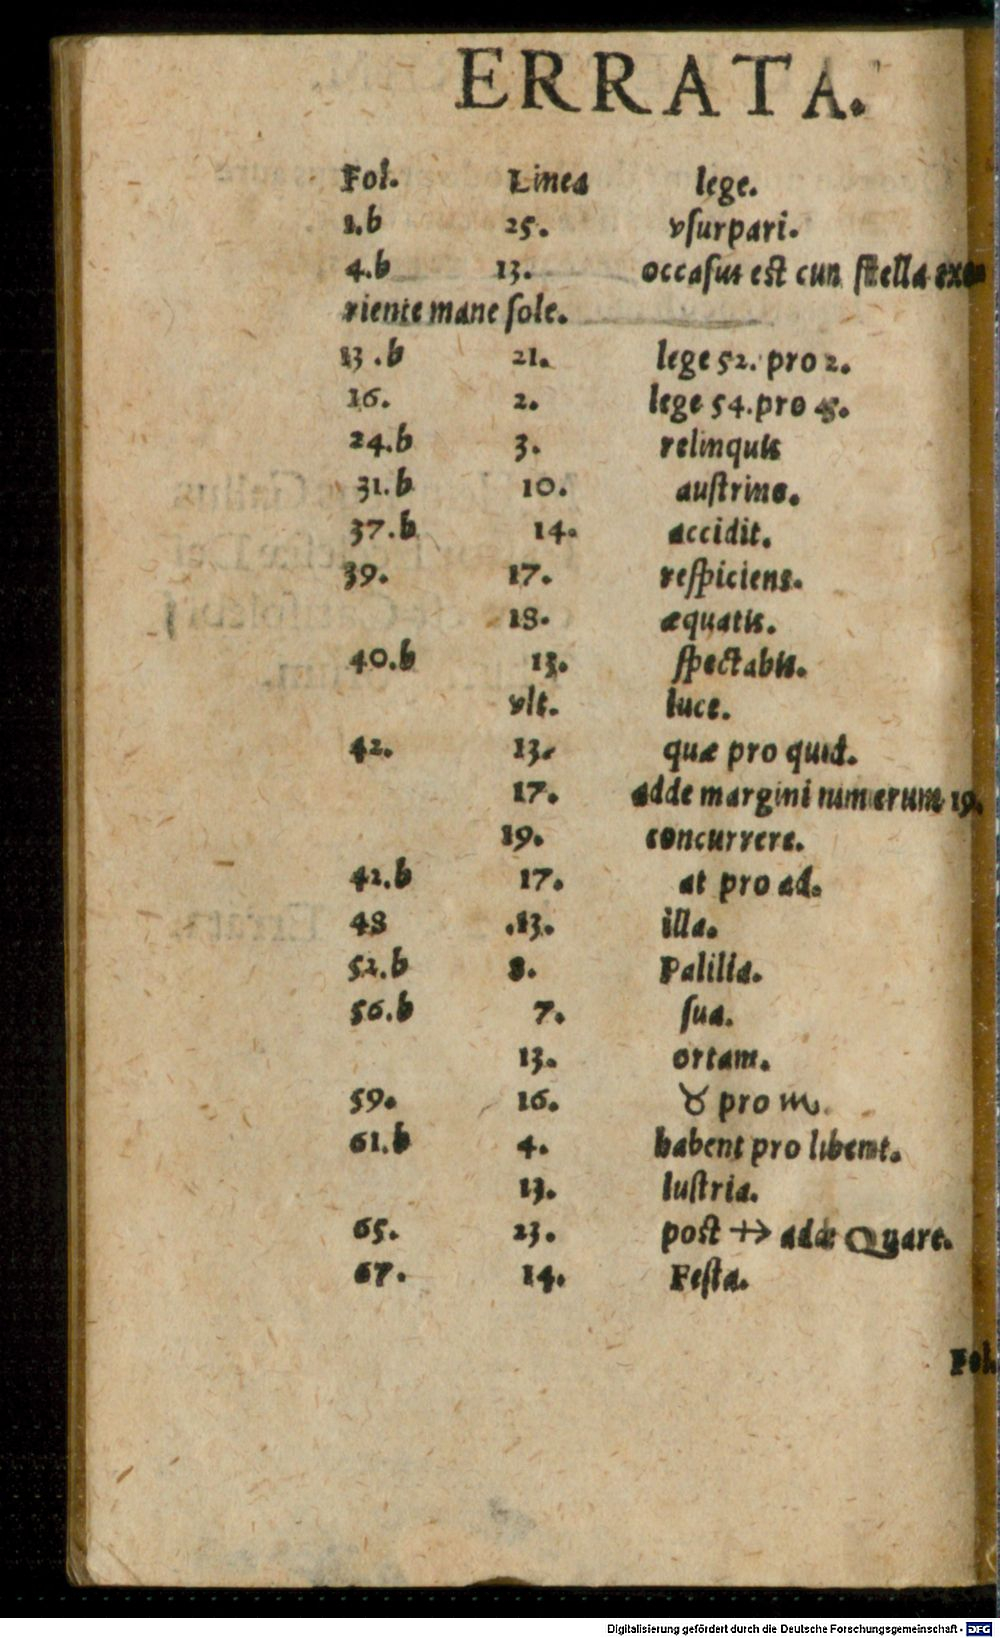 ERRATA.
Fol. Linea lege.
2.b 25. vſurpari.
4.b 13. occaſus est cun ſtella exo
riente mane ſole.
13.b 21. lege 52. pro 2.
16. 2. lege 54. pro 45.
24.b 3. relinquis
31.b 10. auſtrino.
37.b 14. accidit.
39. 17. reſpiciens.
18. æquatis.
40.b 13. ſpectabis.
vlt. luce.
42. 13. quæ pro quid.
17. adde margini numerum 19.
19. concurrere.
42.b 17. at pro ad.
48 .13. illa.
52.b 8. Palilia.
56.b 7. ſua.
13. ortam.
59. 16. ♉ pro ♏.
61.b 4. habent pro libent.
13. luſtria.
65. 23. poſt ♐ adde Quare.
67. 14. Feſta.
Fol.
Digitalisierung gefördert durch die Deutsche Forschungsgemeinschaft - DFG